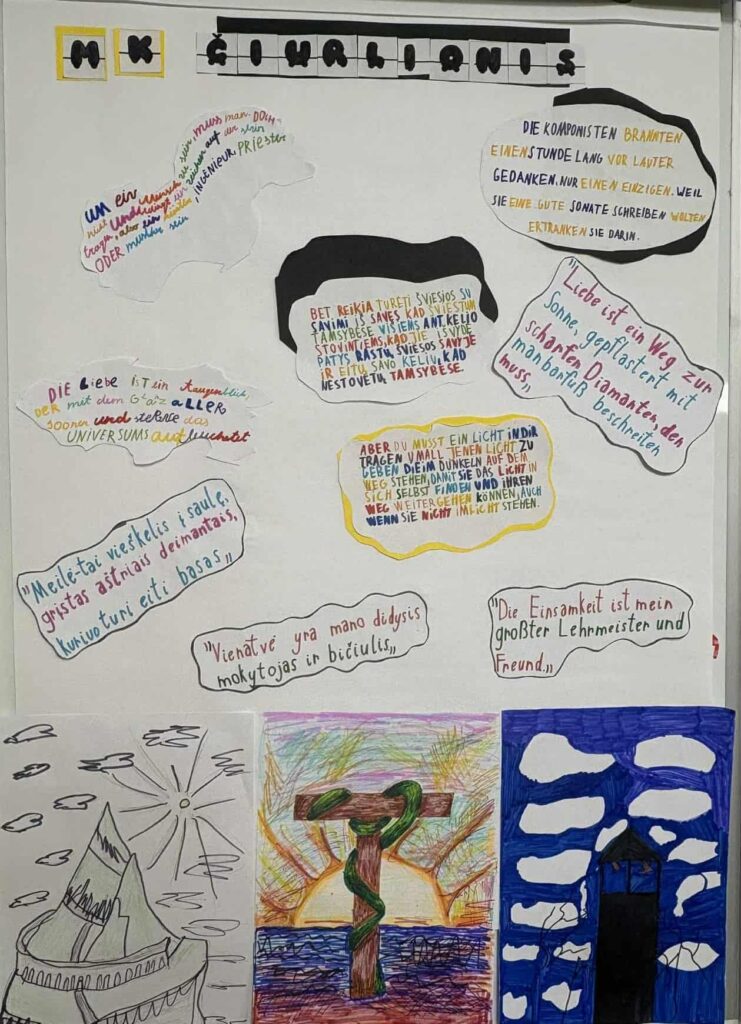 MK ČIURLIONIS
um ein Mensch zu sein, muss man DOCH
nicht unbedingt ein zeichen auf der stirn
tragen, also ein Dichter, INGENIEUR, PRIESTER
ODER musiker sein
DIE KOMPONISTEN BRANNTEN
EINENSTUNDE LANG VOR LAUTER
GEDANKEN. NUR EINEN EINZIGEN. WEIL
SIE EINE GUTE SONATE SCHREIBEN WOLTEN
ERTRANKEN SIE DARIN.
BET REIKIA TURĖTI ŠVIESIOS SU
SAVIMI IŠ SAVĘS KAD ŠVIESTUM
TAMSYBĖSE VISIEMS ANT KELIO
STOVINTIEMS, KAD JIE IŠVYDĘ
PATYS RASTŲ ŠVIESOS SAVYJE
IR EITŲ SAVO KELIU, KAD
NESTOVĖTŲ TAMSYBĖSE.
"Liebe ist ein Weg zur
Sonne, gepflastert mit
scharfen Diamanten, den
man barfuß beschreiten
muss„
DIE Liebe IST ein Augenblick,
DER mit dem Glanz ALLER
Sonnen und sterne das
UNIVERSUMS aufleuchtet
ABER DU MUSST EIN LICHT IN DIR
TRAGEN UM ALL JENEN LICHT ZU
GEBEN DIE IM DUNKELN AUF DEM
WEG STEHEN, DAMIT SIE DAS LICHT IN
SICH SELBST FINDEN UND IHREN
WEG WEITERGEHEN KÖNNEN, AUCH
WENN SIE NICHT IM LICHT STEHEN.
"Meilė-tai vieškelis į saulę,
grįstas aštriais deimantais,
kuriuo turi eiti basas„
"Vienatvė yra mano didysis
mokytojas ir bičiulis„
"Die Einsamkeit ist mein
größter Lehrmeister und
Freund.„